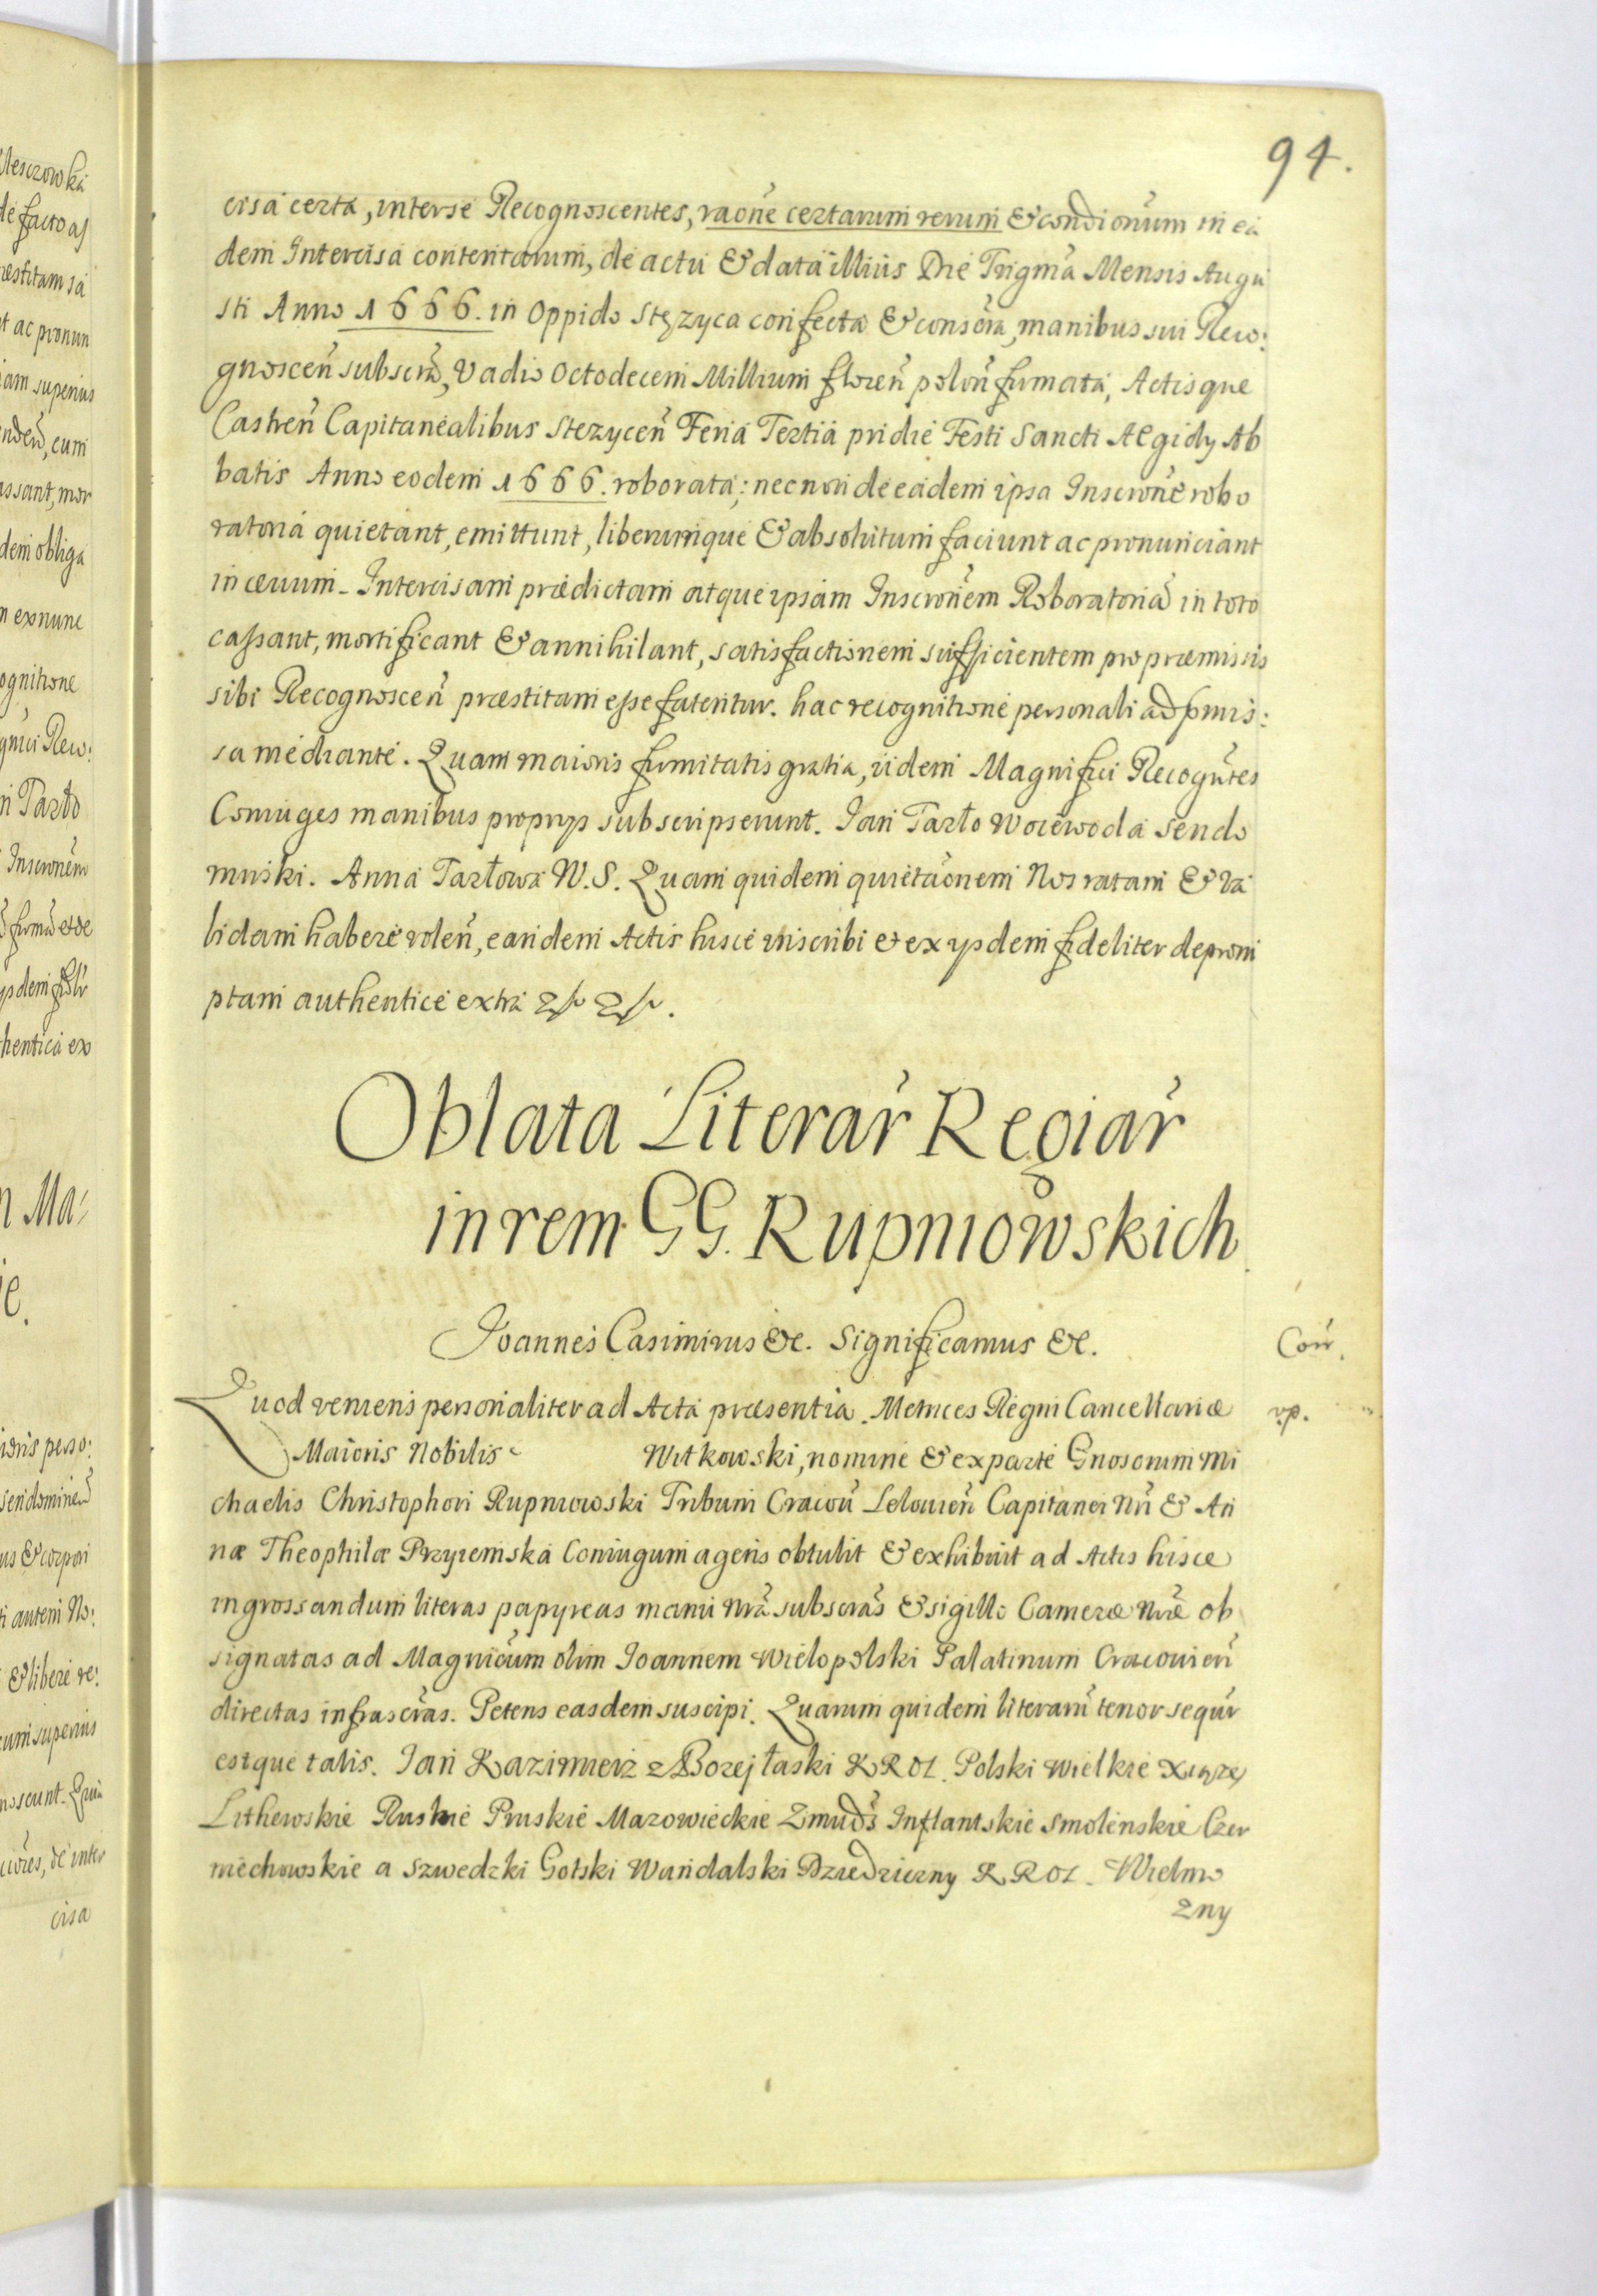 94.
cisa certa, interse Recognoscentes, raone certarum rerum & condionum in ea
dem Intercisa contentarum, de actu & data illius Die Trigma Mensis Augu
sti Anno 1666. in Oppido Stęzyca confecta & conscra, manibus sui Reco:
gnoscen subscra, Vadio Octodecem Millium floren polon firmata, Actisque
Castren Capitanealibus Stezycen Feria Tertia pridie Festi Sancti Aegidy Ab
batis Anno eodem 1666. roborata; nec non de eadem ipsa Inscrone robo
ratoria quietant, emittunt, liberumque & absolutum faciunt ac pronunciant
in ævum. Intercisam prædictam atque ipsam Inscronem Roboratoria in toto
cassant, mortificant & annihilant, satisfactionem sufficientem pro præmissis
sibi Recognoscen præstitam esse fatentur. hac recognitione personali ad pmis:
sa mediante. Quam maioris firmitatis gratia, iidem Magnifici Recogntes
Coniuges manibus proprys subscripserunt. Jan Tarło Woiewoda Sendo
mirski. Anna Tarłowa W.S. Quam quidem quietaonem Nos ratam & va
lidam habere volen, eandem Actis hisce inscribi et ex ysdem fideliter deprom
ptam authentice extra
Oblata Literar Regiar
in rem GG. Rupniowskich
Joannes Casimirus &c. Significamus &c.
Corr.
Quod veniens personaliter ad Acta præsentia Metrices Regni Cancellariæ
rp.
Maioris Nobilis Witkowski, nomine & ex parte Gnosorum Mi
chaelis Christophori Rupniowski Tribuni Cracov Lelovien Capitanei Nri & An
næ Theophilæ Przyiemska Coniugum agens obtulit & exhibuit ad Actis hisce
ingrossandum literas papyreas manu Nra subscras & sigillo Cameræ Nræ ob
signatas ad Magnicum olim Joannem Wielopolski Palatinum Cracovien
directas infrascras. Petens easdem suscipi. Quarum quidem literaru tenor sequr
estque talis. Jan Kazimierz z Bozej łaski KROL Polski Wielkie Xiązę
Lithewskie Ruskie Pruskie Mazowieckie Zmudz Inflantskie Smolenskie Czer
niechowskie a Szwedzki Gotski Wandalski Dziedziczny KROL. Wielmo
zny